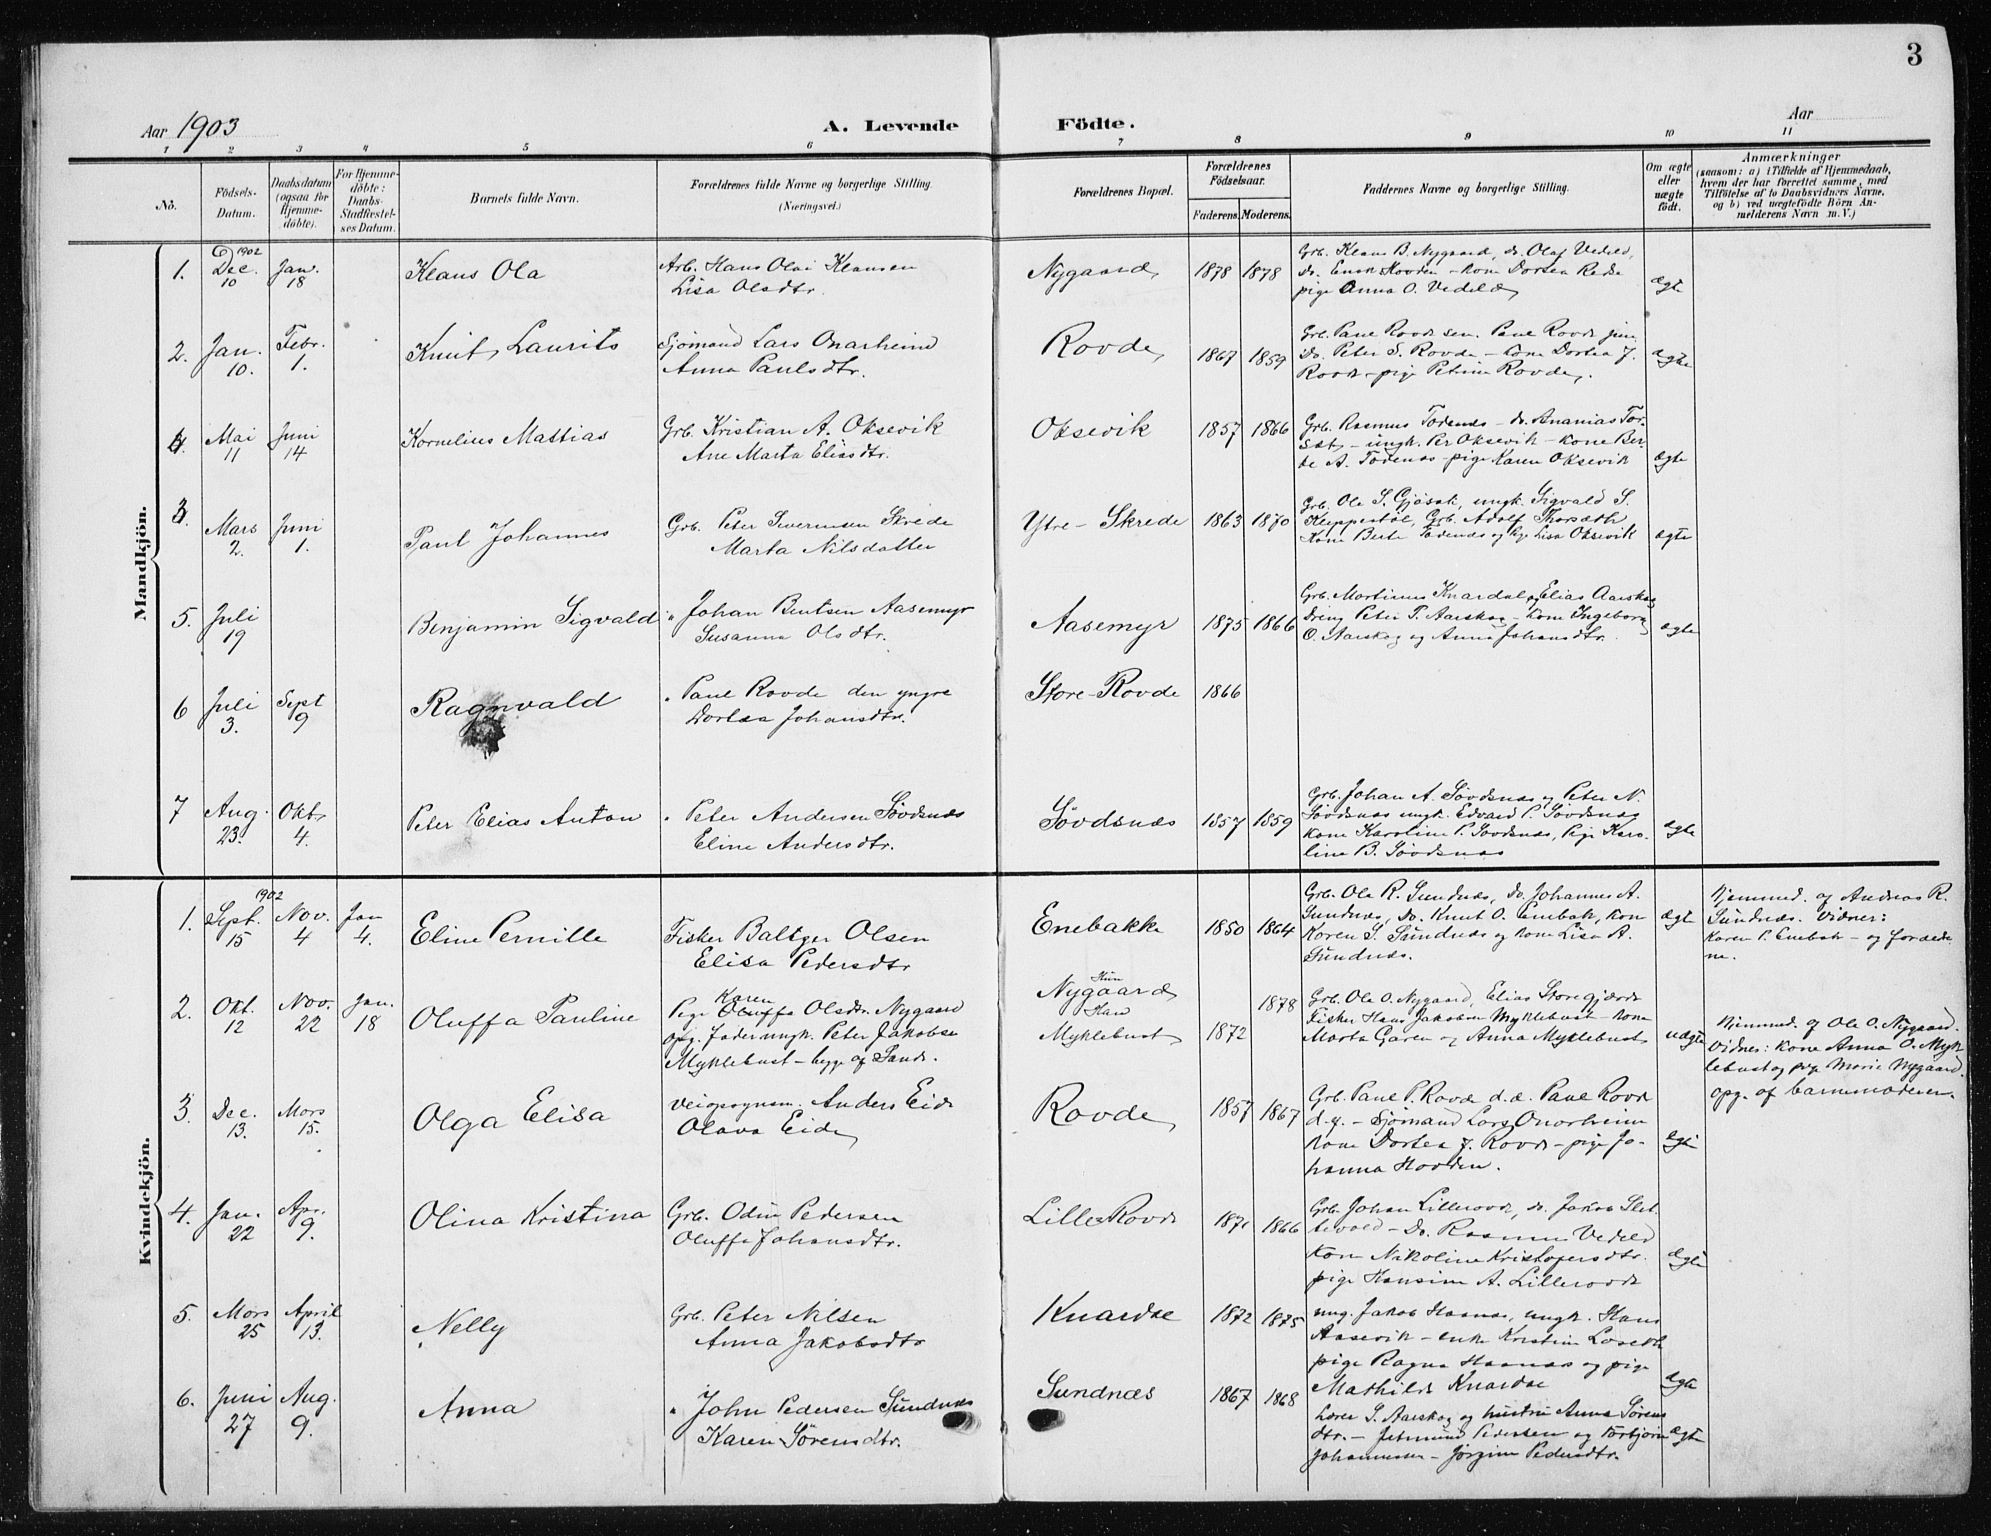 3
Aar 1903 A. Levende Födte. Aar
1 2 3 4 5 6 7 8 9 10 11
No.
Födsels-Datum.
Daabsdatum (ogsaa for Hjemme-döbte).
For Hjemme-döbte: Daabs-Stadfestel-ses Datum.
Barnets fulde Navn.
Forældrenes fulde Navne og borgerlige Stilling. (Næringsvei.)
Forældrenes Bopæl.
Forældrenes Födselsaar.
Faderens. Moderens.
Faddernes Navne og borgerlige Stilling.
Om ægte eller uægte födt.
Anmærkninger
(saasom: a) i Tilfælde af Hjemmedaab,
hvem der har forrettet samme, med
Tilföielse af to Daabsvidners Navne,
og b) ved uægtefödte Börn An-
melderens Navn m. V.)
Mandkjön.
1. 1902 Dec. 10 Jan. 18 Klaus Ola
Arb. Hans Olai Klausen
Lisa Olsdtr.
Nygaard 1878 1878
Grb. Klaus B. Nygaard, do. Olaf Vedeld,
do. Hovden - kone Dortea
pige Anna O. Vedeld
ægte
2. Jan. 10. Febr. 1. Knut Laurits
Sjömand Lars Onarheim
Anna Paulsdtr.
Rovde 1867 1859
Grb. Paul Rovde sen. Paul Rovde jun.
Do. Peter S. Rovde - kone Dortea J.
Rovde - pige Petrine Rovde.
ægte
4. Mai 11 Juni 14 Kornelius Mattias
Grb. Kristian A. Oksevik
Ane Marta Eliasdtr.
Oksevik 1857 1866
Grb. Rasmus Todenes - do. Ananias Tor-
sæt - ungk. Per Oksevik - kone Ber-
te A. Todenes - pige Karen Oksevik
ægte
3 Mars 2. Juni 1. Paul Johannes
Grb. Peter Severinsen Skrede
Marta Nilsdatter
Ytre-Skrede 1863 1870
Grb. Ole S. Gjösæt, ungk. Sigvald S.
Kleppestöl, Grb. Adolf Thorsæth,
Kone Berte Todenes og Pige Lisa Oksevik
ægte
5. Juli 19 Benjamin Sigvald
" Johan Bentsen Aasemyr
Susanna Olsdtr.
Aasemyr 1875 1866
Grb. Martinus Knardal, Elias Aarskog
Dreng Peter P. Aarskog - kone Ingeborg
O. Aarskog og Anna Johansdtr.
ægte
6 Juli 3. Sept 9 Ragnvald
" Paul Rovde den yngre
Dortea Johansdtr.
Store-Rovde 1866
7 Aug. 23. Okt. 4. Peter Elias Anton
" Peter Andersen Sövdsnæs
Eline Andersdtr.
Sövdsnæs 1857 1859
Grb. Johan A. Sövdsnæs og Peter N.
Sövdsnæs ungk. Edvard P. Sövdsnæs
kone Karoline P. Sövdsnæs, Pige Karo-
line B. Sövdsnæs
ægte
Kvindekjön.
1. 1902 Sept. 15 Nov. 4 Jan 4. Eline Pernille
Fisker Baltzer Olsen
Elisa Pedersdtr
Enebakke 1850 1864
Grb. Ole R. Sundnæs, do. Johannes A.
Sundnæs, do. Knut O. Enebak, kone
Karen S. Sundnæs og kone Lisa A.
Sundnæs.
ægte
Hjemmed. af Andreas R.
Sundnæs. Vidner:
Karen P. Enebak - og foreldre
ne.
2. Okt. 12 Nov. 22 Jan. 18 Oluffa Pauline
Pige Karen Oluffa Olsdtr. Nygaard
opg. fader ungk. Peter Jakobsen
Myklebust - bygg. af Sande.
Hun Nygaard
Han Myklebust 1872 1878
Grb. Ole O. Nygaard, Elias Storegjærde
Fisker Hans Jakobsen Myklebust - kone
Marta Garen og Anna Myklebust
uægte
Hjemmed. af Ole O. Nygaard.
Vidner: kone Anna O. Myk
lebust og pige Marie Nygaard.
opg. af barnemoderen.
3. Dec. 13. Mars 15. Olga Elisa
Veiopsynsm. Anders Eide
Olava Eide
Rovde 1857 1867
Grb. Paul P. Rovde d.æ. Paul Rovde
d.y. - Sjömand Lars Onarheim
kone Dortea J. Rovde - pige Jo-
hanna Hovden.
ægte
4. Jan. 22 Apr. 9. Olina Kristina
Grb. Odin Pedersen
Oluffa Johansdtr.
Lille Rovde 1871 1866
Grb. Johan Lillerovde, do. Jakob Slet-
tevold - Do. Rasmus Vedeld
kone Nikoline Kristofersdtr.
pige Hansine A. Lillerovde
ægte
5. Mars 25 April 13. Nelly
Grb. Peter Nilsen
Anna Jakobsdtr
Knardal 1872 1875
ung. Jakob Haanæs, ungk. Hans
Aasevik - enke Kristine Loseth
pige Ragna Haanæs og pige
Mathilde Knardal
ægte
6. Juni 27 Aug. 9. Anna
" John Pedersen Sundnæs
Karen Sörensdtr.
Sundnæs 1867 1868
Lærer S. Aarskog og hustru Anna Sörens
dtr. - Jetmund Pedersen og Torbjörn
Johannessen - Jörgine Pedersdtr.
ægte